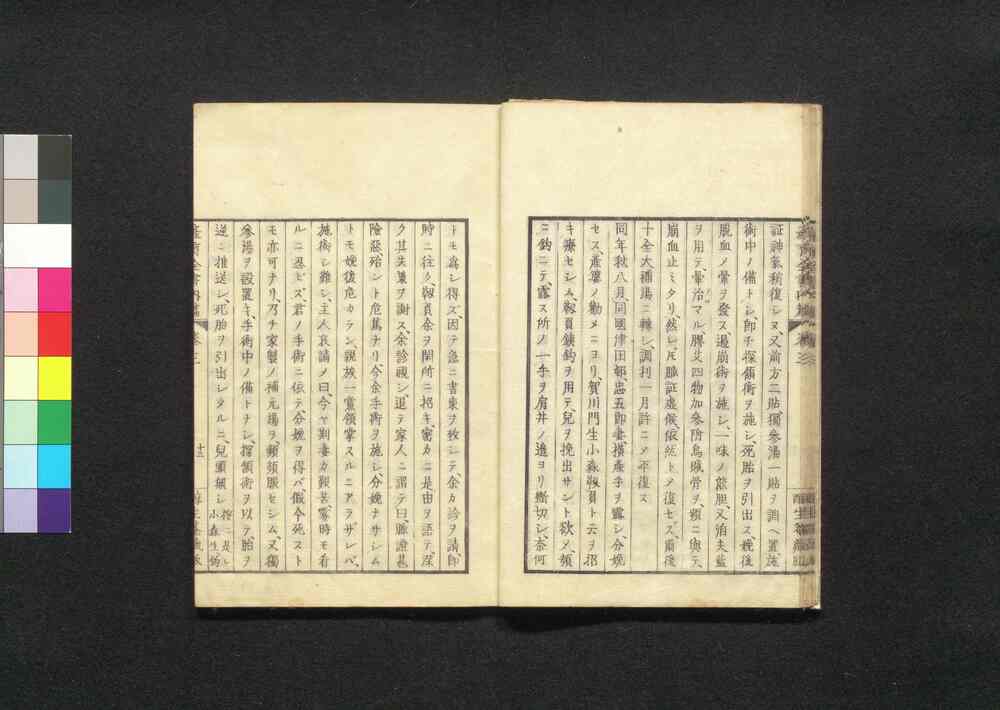 証神氣稍復シヌ、又前方二貼、獨參湯一貼ヲ調ヘ置、施
術中ノ備トシ、即チ探頷術ヲ施シ、死胎ヲ引出ス、娩後
脱血ノ暈ヲ發ス、遏崩術ヲ施シ、一味ノ熊胆又泊夫藍
ヲ用テ、暈治マル、膠艾四物加參附烏賊骨ヲ、頻ニ與テ、
崩血止ミタリ、然レ𪜈臓証虚候依然トメ復セズ、爾後
十全大補湯ニ轉シ、調利一月許ニメ平復ス
同年秋八月、同國津田邨忠五郎妻、横産手ヲ露シ、分娩
セス産婆ノ勧メニヨリ、賀川門生小森靱負ト云ヲ招
キ療セシム、靱負鉄鈎ヲ用テ、兒ヲ挽出サント欲メ、頻
ニ鈎ニテ、露ス所ノ一手ヲ肩井ノ邉ヨリ断切シ、奈何
トモ為シ得ズ、因テ急ニ書柬ヲ致シテ、余カ診ヲ請、即
時ニ往ク、靱負余ヲ閑所ニ招キ、密カニ是由ヲ語テ、深
ク其失策ヲ謝ス、余診視シ、退テ家人ニ謂テ曰、脈證甚
險惡、殆ント危篤ナリ、今余手術ヲ施シ、分娩ナサシム
トモ娩後危カラン、親族一黨領掌スルニアラザレバ、
施術シ難シ、主人哀請メ曰、今ヤ荆妻カ艱苦、霎時モ看
ルニ忍ビズ、君ノ手術ニ依テ分娩ヲ得バ、假令死スト
モ亦可ナリ、乃チ家製ノ補元湯ヲ、頻頻服セシム、又獨
參湯ヲ設置キ、手術中ノ備トナシ、探頷術ヲ以テ、胎ヲ
逆ニ推送シ、死胎ヲ引出シタルニ、兒頭無シ